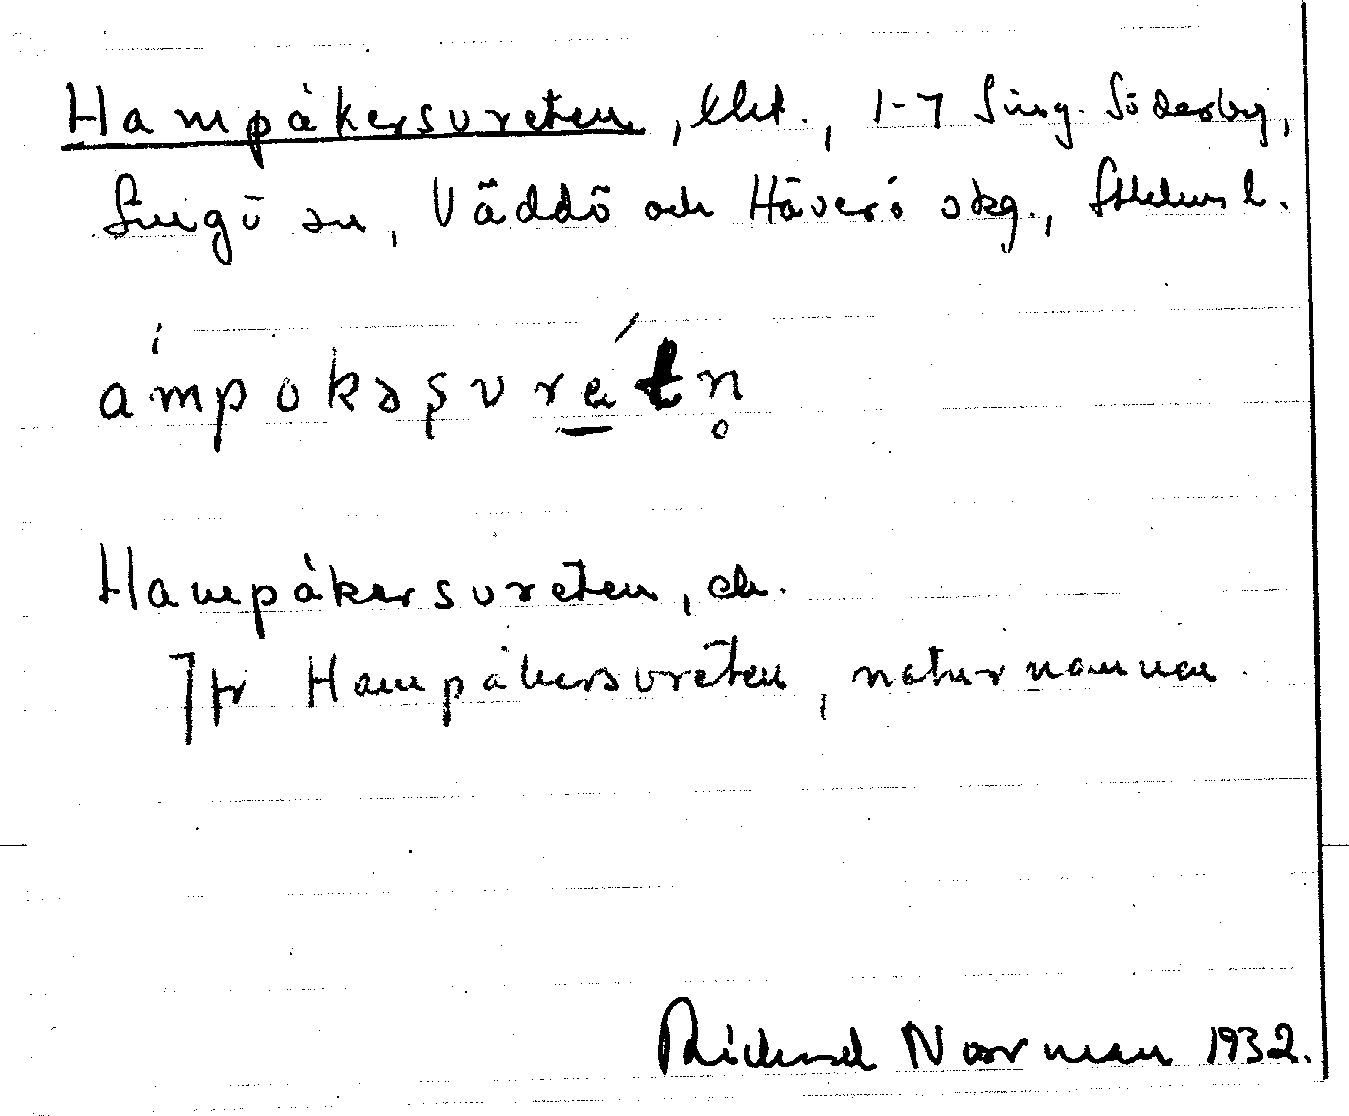 Hampåkersvreten, lht., 1-7 Sing. Söderby,
Singö sn, Väddö och Häverö skg., Sthlms l.
ámpokəșvrétn̥
Hampåkersvreten, ek.
Jfr Hampåkersvreten, naturnamnen.
Richard Norrman 1932.